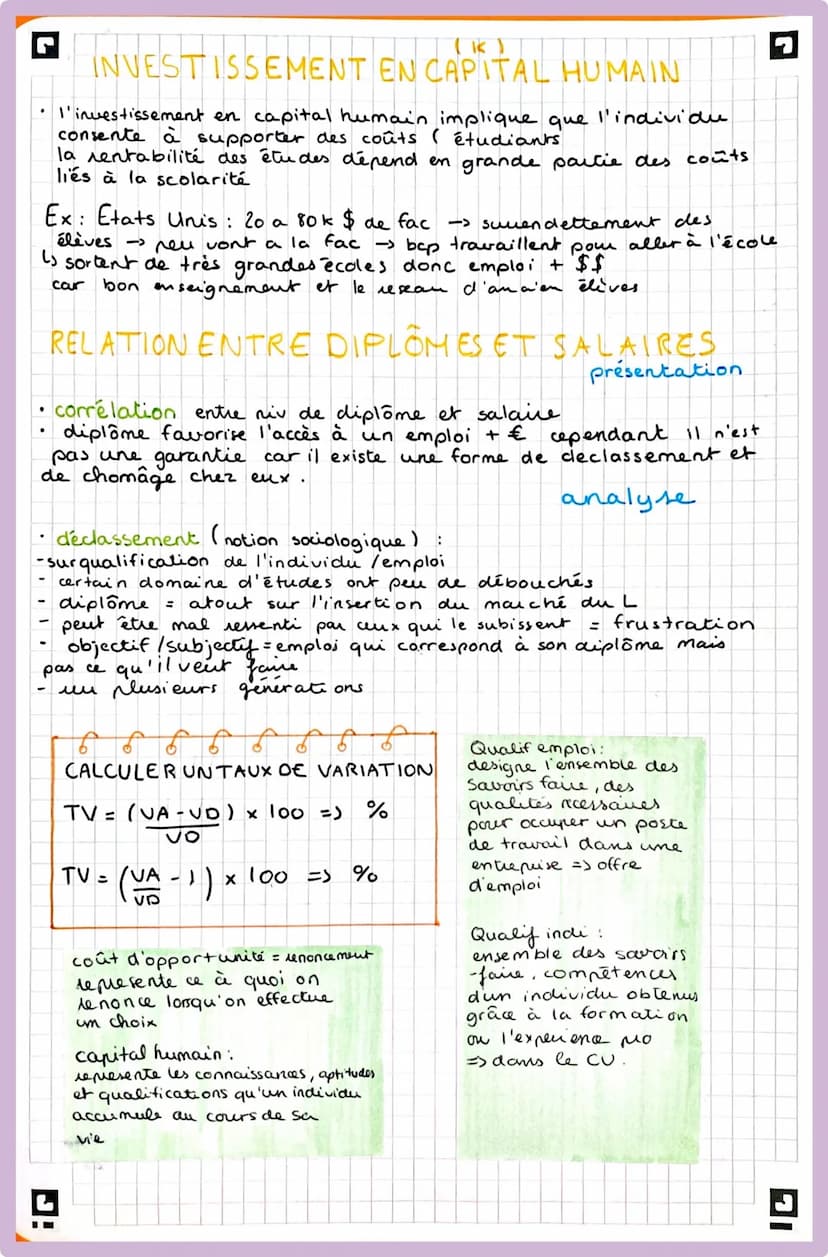 (K)
INVESTISSEMENT EN CAPITAL HUMAIN
• l'investissement en capital humain implique que l'individu
consente à supporter des coûts ( étudiants
la rentabilité des études dépend en grande partie des coûts
liés à la scolarité
Ex : Etats Unis : 20 a 80k $ de fac → surendettement des
élèves → peu vont a la fac → bcp travaillent pour aller à l'école
↳ sortent de très grandes écoles donc emploi + $$
car bon enseignement et le reseau d'ancien élèves
RELATION ENTRE DIPLÔMES ET SALAIRES
présentation
• corrélation entre niv de diplôme et salaire
• diplôme favorise l'accès à un emploi + € cependant il n'est
pas une garantie car il existe une forme de declassement et
de chomâge chez eux .
analyse
• déclassement ( notion sociologique ) :
- surqualification de l'individu / emploi
- certain domaine d'études ont peu de débouchés
- diplôme = atout sur l'insertion du marché du L
- peut être mal ressenti par ceux qui le subissent = frustration
- objectif / subjectif = emploi qui correspond à son diplôme mais
pas ce qu'il veut faire
- plusieurs générations
CALCULER UN TAUX DE VARIATION
TV = (VA - VD) x 100 => %
VD
TV = (VA - 1) x 100 => %
VD
coût d'opportunité = renoncement
represente ce à quoi on
renonce lorsqu'on effectue
un choix
capital humain :
represente les connaissances, aptitudes
et qualifications qu'un individu
accumule au cours de sa
vie
Qualif emploi :
designe l'ensemble des
savoirs faire, des
qualités necessaires
pour occuper un poste
de travail dans une
entreprise => offre
d'emploi
Qualif indi :
ensemble des savoirs
-faire, compétences
d'un individu obtenus
grâce à la formation
ou l'experience pro
=> dans le CV.